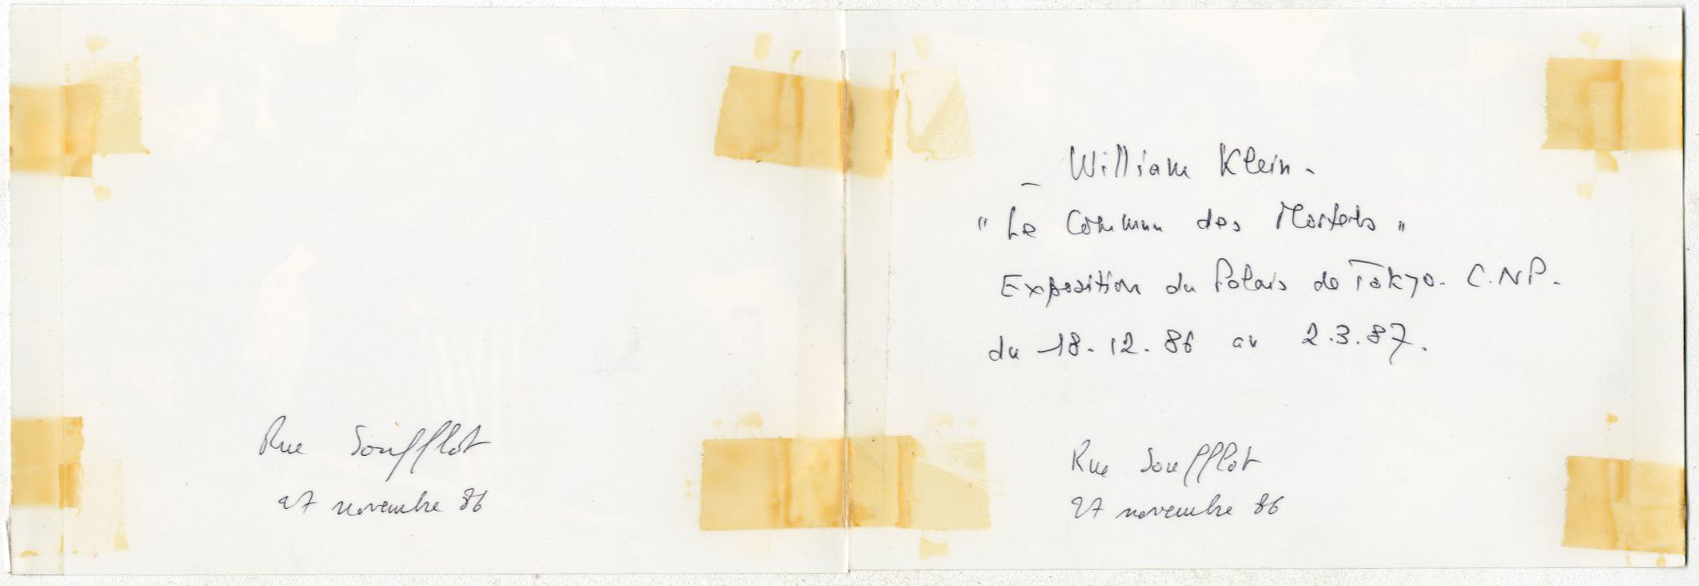 Rue Soufflot
27 novembre 86
_ William Klein -
" Le Commun des Mortels "
Exposition du Palais de Tokyo - C.NP.
du 18.12.86 au 2.3.87.
Rue Soufflot
27 novembre 86